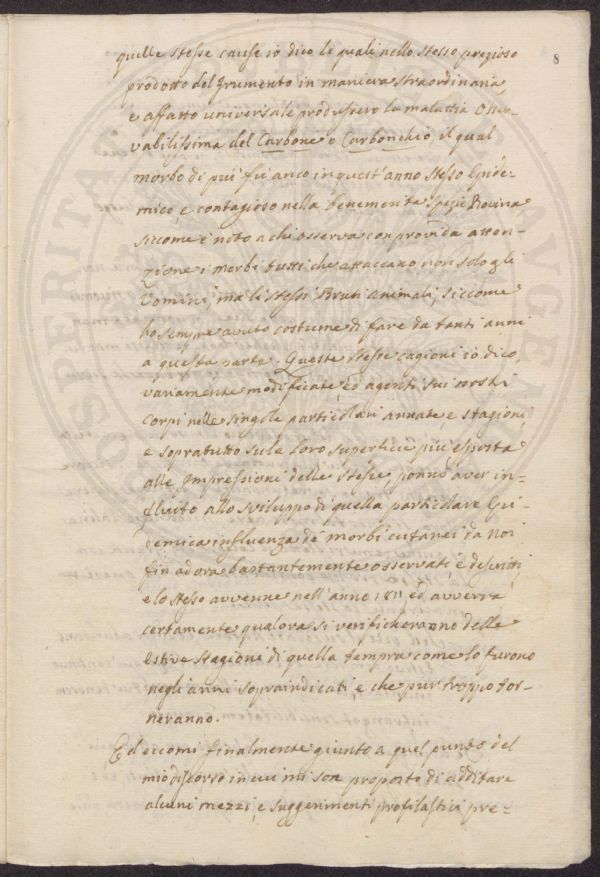 8
quelle stesse cause io dico le quali nello stesso prezioso
prodotto del frumento in maniera straordinaria,
e affatto universale produssero la malattia osser-
vabilissima del Carbone o Carbonchio il qual
morbo di più fù anco in quest'anno stesso Epide-
mico, e contagioso nella benemerita spezie Bovina
siccome è noto a chi osserva con provida atten-
zione i morbi tutti che attaccano non solo gli
Uomini ma li stessi Bruti animali, siccome
ho sempre avuto costume di fare da tanti anni
a questa parte. Queste stesse cagioni io dico,
variamente modificate, ed agenti sui nostri
corpi nelle singole particolari annate, e stagioni,
e sopratutto sule loro superficie più esposta
alle Impressioni delle stesse, ponno aver in-
fluito allo sviluppo di quella particolare Epi-
demica influenza de morbi cutanei da noi
fin ad ora bastantemente osservati, e descritti,
e lo steso avvenne nell'anno 1811 ed avverrà
certamente qualora si verificheranno delle
estive stagioni di quella tempra come lo furono
negli anni sopraindicati, e che pur troppo tor-
neranno.
Ed eccomi finalmente giunto a quel punto del
mio discorso in cui mi son proposto di additare
alcuni mezzi, e suggerimenti profilastici pre-
PROSPERITAS
AVGEN